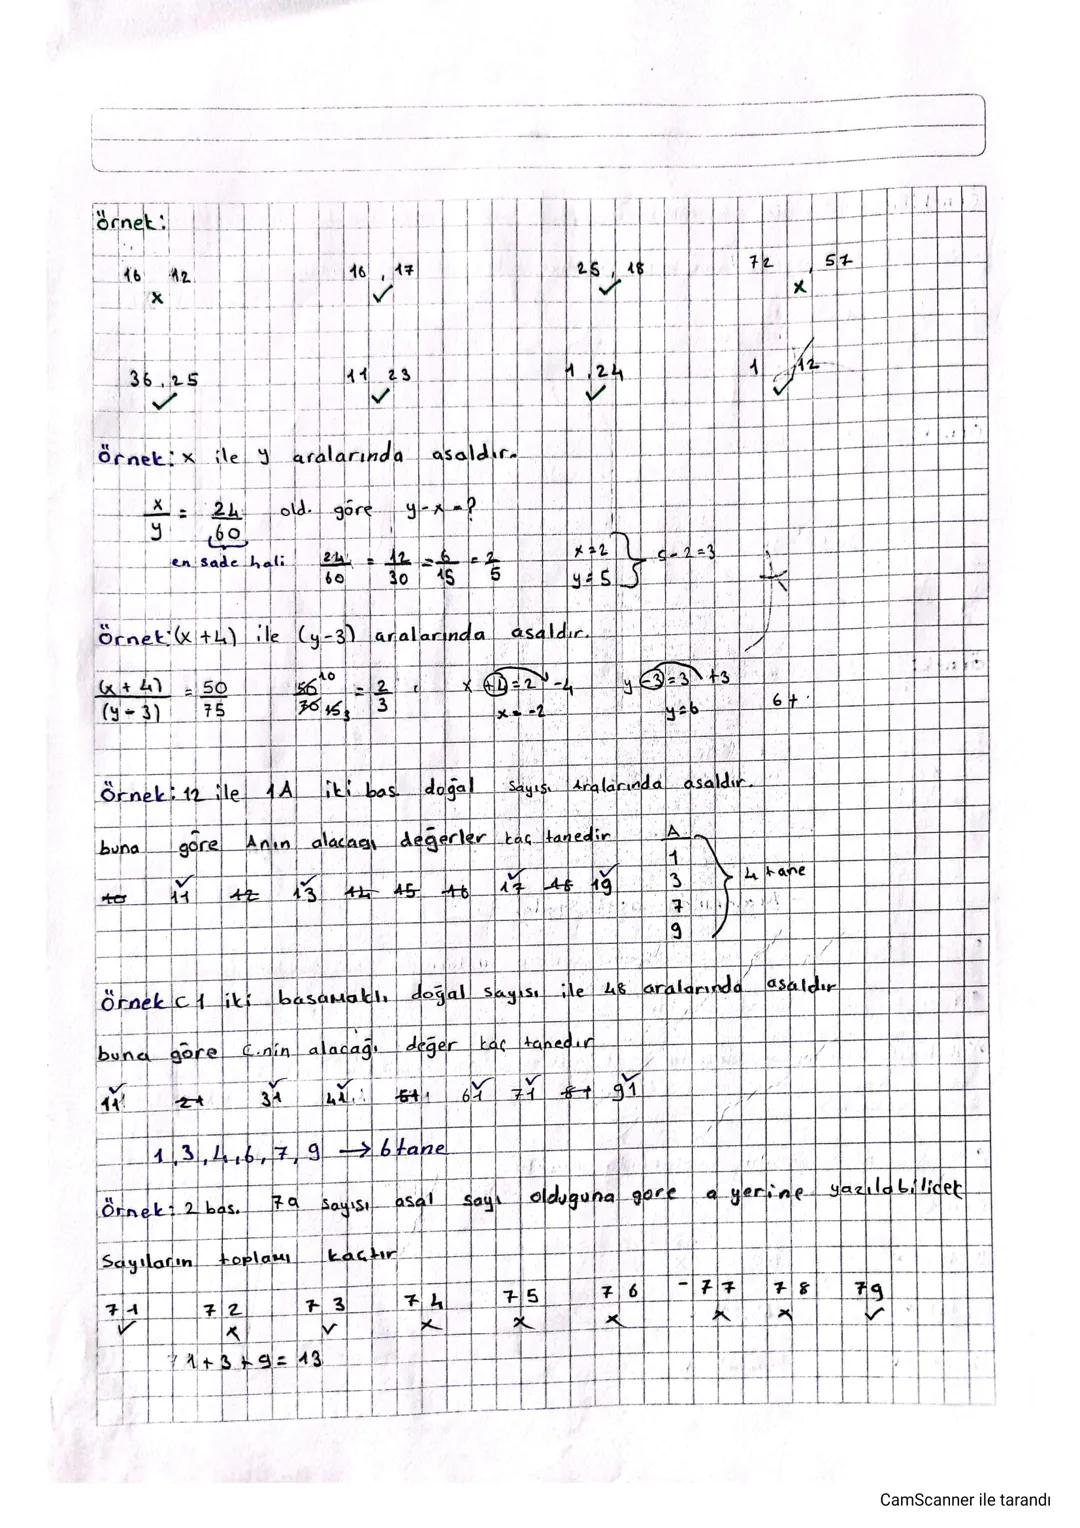 örnek:
16 12 16 , 17 25 , 18 72 , 57
x ✓ ✓ x
36 , 25 11 23 1 , 24 1 12
✓ ✓ ✓ ✓
örnek: x ile y aralarında asaldır.
x/y = 24/60 old. göre y-x=?
en sade hali 24/60 = 12/30 = 6/15 = 2/5 x=2 y=5 } 5-2=3
örnek: (x+4) ile (y-3) aralarında asaldır.
(x+4)/(y-3) = 50/75 = 2/3 x+4=2 -4 y-3=3 +3
x=-2 y=6 6+
örnek: 12 ile 1A iki bas doğal sayısı aralarında asaldır.
buna göre Anın alacağı değerler kaç tanedir
10 11 12 13 14 15 16 17 18 19
A
1
3
7
9
4 tane
örnek C1 iki basamaklı doğal sayısı ile 48 aralarında asaldır
buna göre C.nin alacağı değer kaç tanedir
11 21 31 41 51 61 71 81 91
1,3,4,6,7,9 → 6 tane
örnek: 2 bas. 7a sayısı asal sayı olduguna gore a yerine yazılabilicek
Sayıların toplamı kaçtır
71 72 73 74 75 76 - 77 78 79
✓ x ✓ x x x x x ✓
1+3+9=13
CamScanner ile tarandı